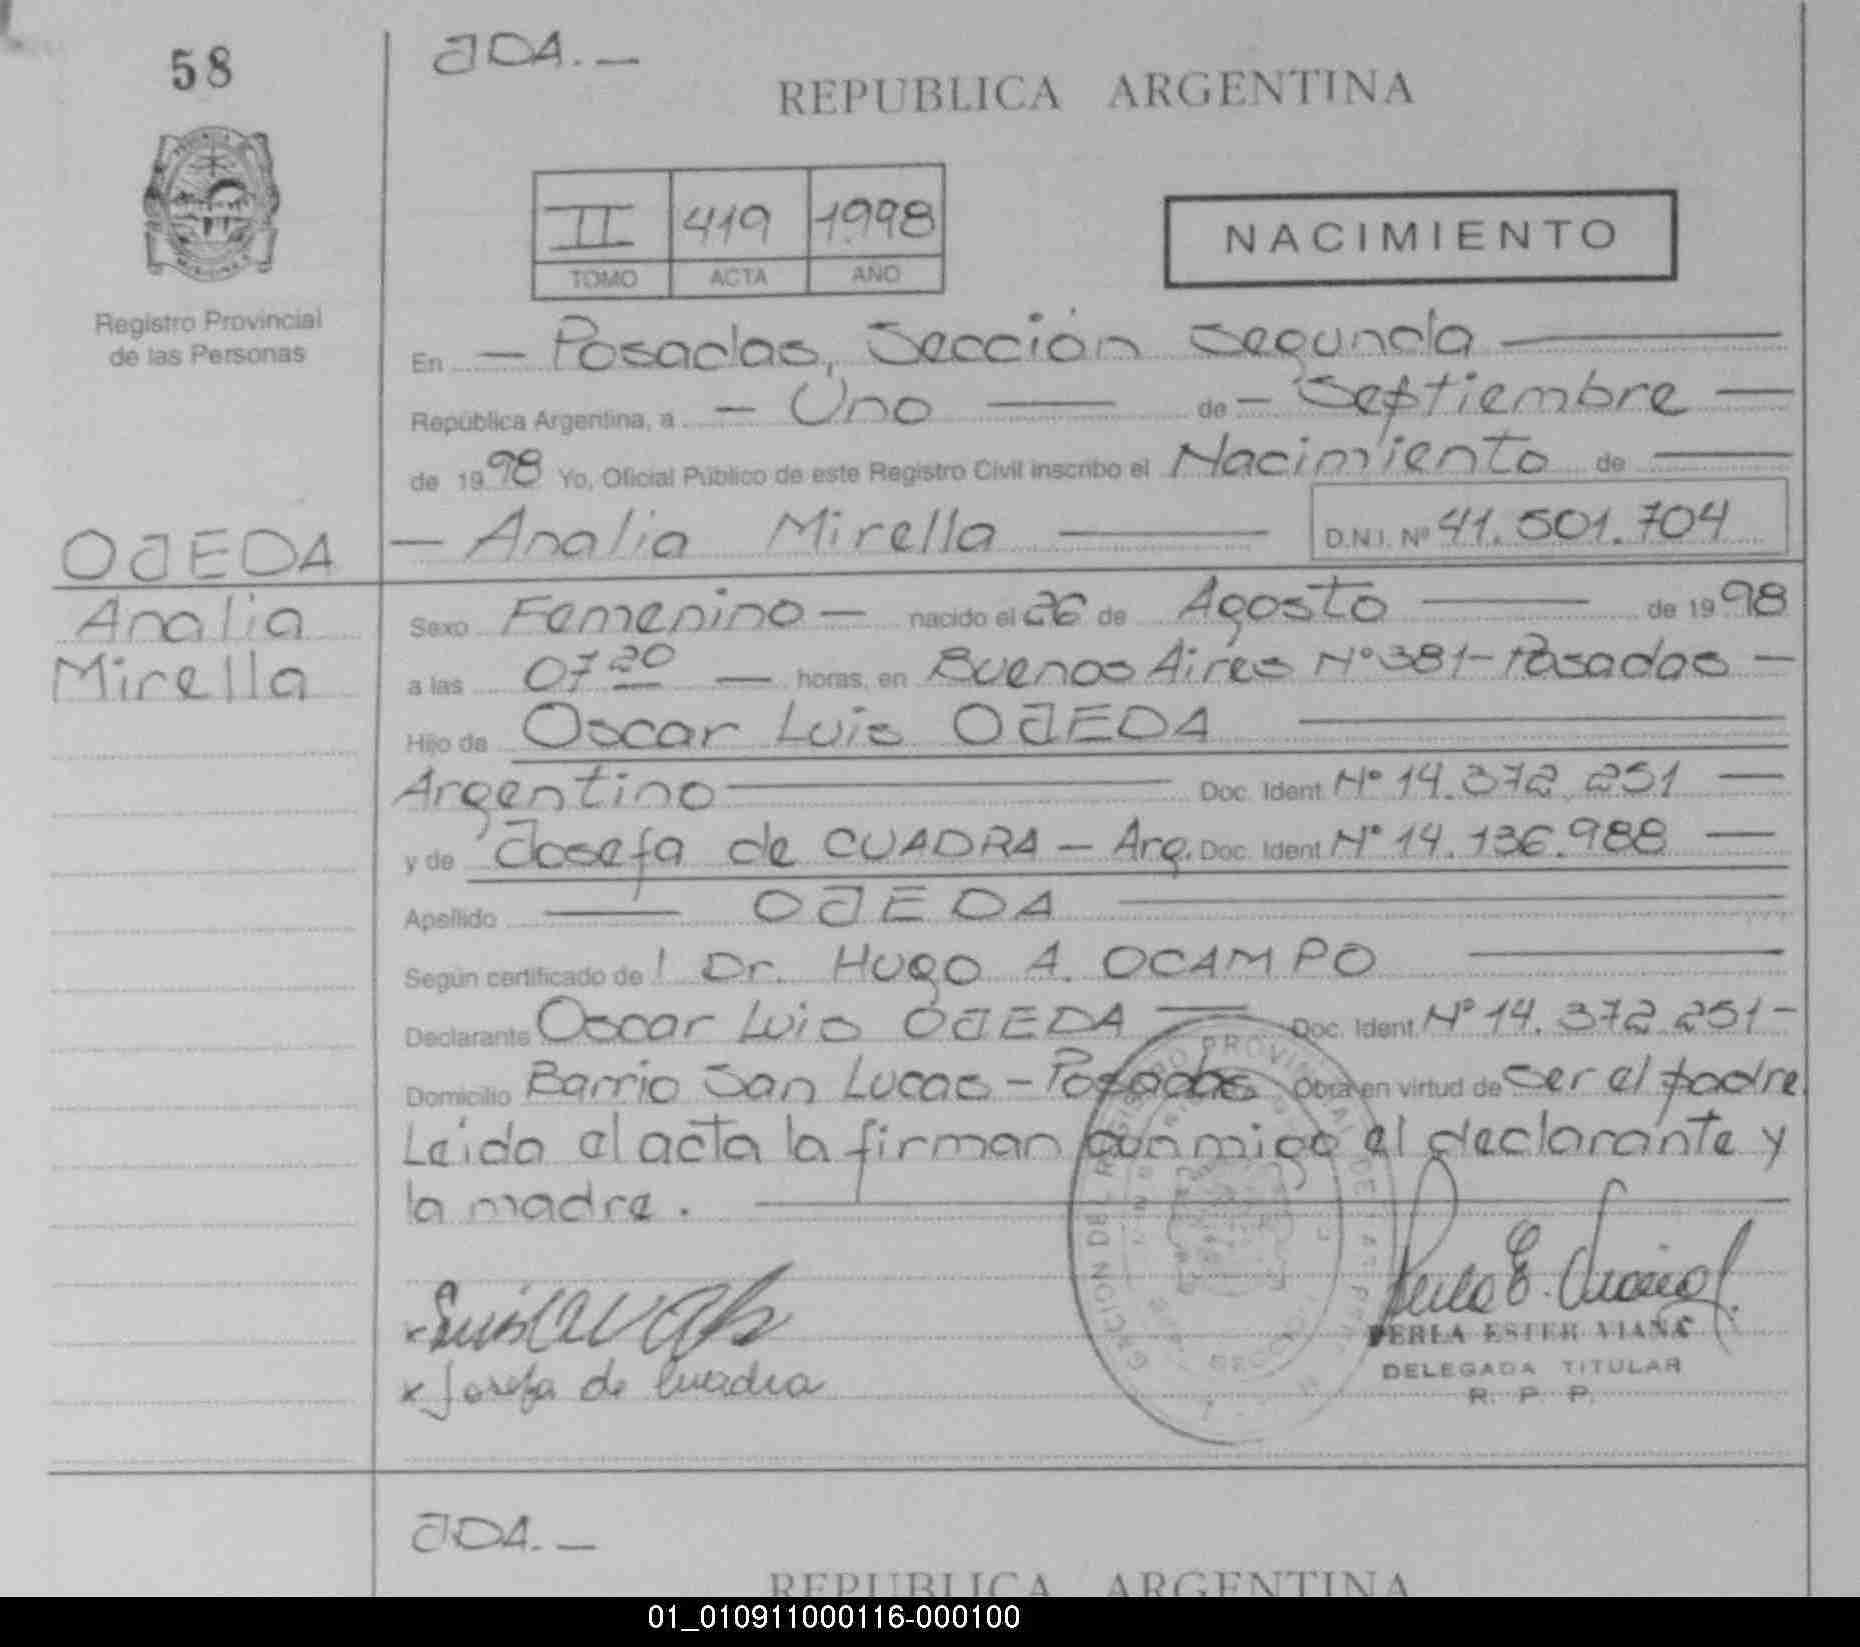 58
JDA.—
REPUBLICA ARGENTINA
II 419 1998
TOMO ACTA AÑO
NACIMIENTO
Registro Provincial
de las Personas
En — Posadas, Sección Segunda —
República Argentina, a — Uno — de — Septiembre —
de 1998 Yo, Oficial Público de este Registro Civil inscribo el Nacimiento de —
— Analia Mirella — D.N.I. Nº 41.501.704
OJEDA
Analia
Mirella
Sexo Femenino — nacido el 26 de Agosto — de 1998
a las 07 20 — horas, en Buenos Aires Nº 381 - Posadas —
Hijo de Oscar Luis OJEDA —
Argentino — Doc. Ident. Nº 14.372.251 —
y de Josefa de CUADRA — Arg. Doc. Ident. Nº 14.136.988 —
Apellido — OJEDA —
Según certificado de l Dr. Hugo A. OCAMPO —
Declarante Oscar Luis OJEDA — Doc. Ident. Nº 14.372.251 -
Domicilio Barrio San Lucas - Posadas Obra en virtud de ser el padre.
Leida el acta la firman conmigo el declarante y
la madre. —
x Josefa de Cuadra
PERLA ESTER VIANA
DELEGADA TITULAR
R. P. P.
JDA.—
REPUBLICA ARGENTINA
01_010911000116-000100